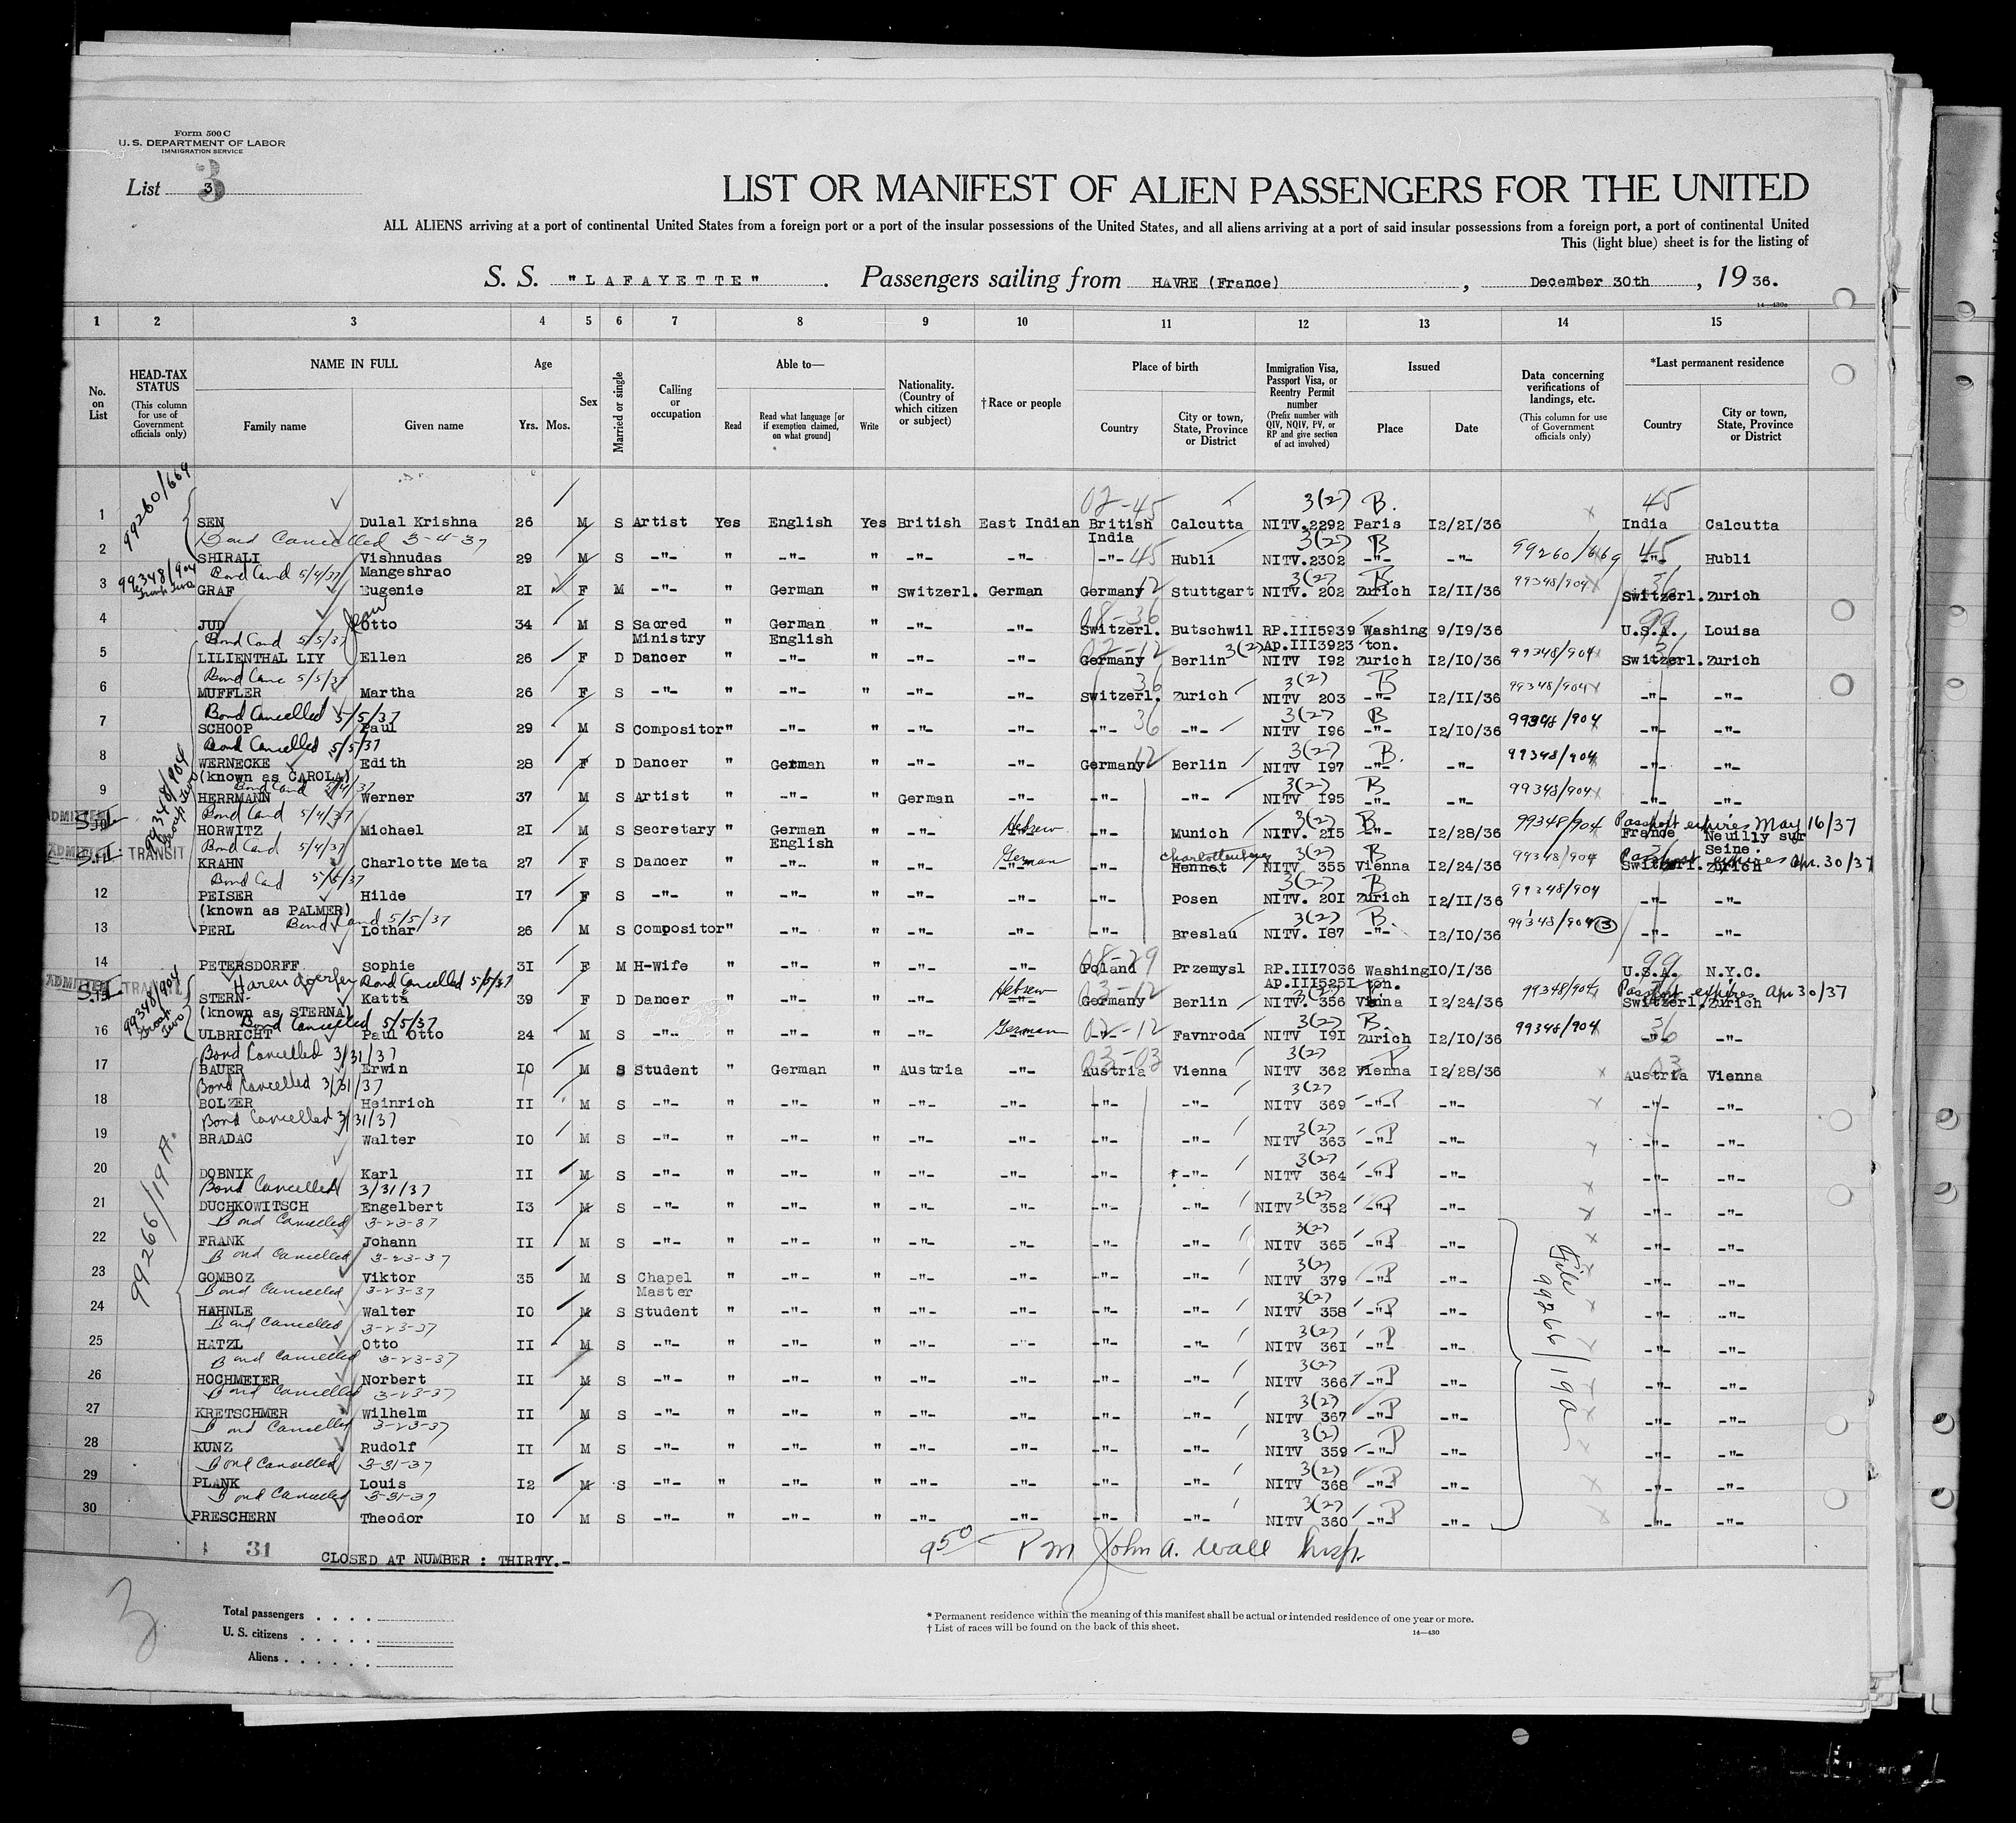 Form 500 C
U. S. DEPARTMENT OF LABOR
IMMIGRATION SERVICE
List 3
3
LIST OR MANIFEST OF ALIEN PASSENGERS FOR THE UNITED
ALL ALIENS arriving at a port of continental United States from a foreign port or a port of the insular possessions of the United States, and all aliens arriving at a port of said insular possessions from a foreign port, a port of continental United
This (light blue) sheet is for the listing of
S. S. "LAFAYETTE" . Passengers sailing from HAVRE (France) , December 30th , 19 36.
14—430a
1 2 3 4 5 6 7 8 9 10 11 12 13 14 15
No. on List
HEAD-TAX STATUS (This column for use of Government officials only)
NAME IN FULL Family name Given name
Age Yrs. Mos.
Sex
Married or single
Calling or occupation
Able to— Read Read what language [or if exemption claimed, on what ground] Write
Nationality. (Country of which citizen or subject)
†Race or people
Place of birth Country City or town, State, Province or District
Immigration Visa, Passport Visa, or Reentry Permit number (Prefix number with QIV, NQIV, PV, or RP and give section of act involved)
Issued Place Date
Data concerning verifications of landings, etc. (This column for use of Government officials only)
*Last permanent residence Country City or town, State, Province or District
99260/669
02-45 3(2) B. 45
1 SEN Dulal Krishna 26 M S Artist Yes English Yes British East Indian British India Calcutta NITV.2292 Paris I2/21/36 India Calcutta
Bond Cancelled 3-4-37
3(2) B
2 SHIRALI Vishnudas Mangeshrao 29 M S -"- " -"- " -"- -"- -"- 45 Hubli NITV.2302 -"- -"- 99260/669 45 -"- Hubli
99348/904 Group Two
Bond Cancd 5/4/37
3(2) B. 36
3 GRAF Eugenie 2I F M -"- " German " Switzerl. German Germany 12 Stuttgart NITV. 202 Zurich I2/II/36 99348/904 Switzerl. Zurich
08-36 99
4 JUD Otto 34 M S Sacred Ministry " German English " -"- -"- Switzerl. Butschwil RP.III5939 Ap.III3923 Washing ton. 9/I9/36 U.S.A. Louisa
Bond Cancd 5/5/37
02-12 3(2) 36
5 LILIENTHAL LIY Ellen 26 F D Dancer " -"- " -"- -"- Germany Berlin NITV I92 Zurich I2/I0/36 99348/904 Switzerl. Zurich
Bond Canc 5/5/37
36 3(2) B
6 MUFFLER Martha 26 F S -"- " -"- " -"- -"- Switzerl. Zurich NITV 203 -"- I2/II/36 99348/904 -"- -"-
Bond Cancelled 5/5/37
3(2) B
7 SCHOOP Paul 29 M S Compositor " -"- " -"- -"- -"- 36 -"- NITV I96 -"- I2/I0/36 99348/904 -"- -"-
Bond Cancelled 5/5/37
3(2) B.
8 WERNECKE (known as CAROLA) Edith 28 F D Dancer " German " -"- -"- Germany 12 Berlin NITV I97 -"- -"- 99348/904 -"- -"-
99348/904 Group Two
Bond Cancd 5/4/37
3(2) B
9 HERRMANN Werner 37 M S Artist " -"- " German -"- -"- -"- NITV I95 -"- -"- 99348/904 -"- -"-
ADMITTED S.I.
Bond Cancd 5/4/37
Hebrew 3(2) B Passport expires May 16/37
10 HORWITZ Michael 2I M S Secretary " German English " -"- -"- -"- Munich NITV. 2I5 -"- I2/28/36 99348/904 France Neuilly sur Seine.
ADMITTED S.I. TRANSIT
Bond Cancd 5/4/37
German Charlottenburg 3(2) B Passport expires Apr. 30/37
11 KRAHN Charlotte Meta 27 F S Dancer " -"- " -"- -"- -"- Hennet NITV 355 Vienna I2/24/36 99348/904 Switzerl. Zurich
Bond Cancd 5/5/37
3(2) B
12 PEISER (known as PALMER) Hilde I7 F S -"- " -"- " -"- -"- -"- Posen NITV. 20I Zurich I2/II/36 99348/904 -"- -"-
Bond Cancd 5/5/37
3(2) B.
13 PERL Lothar 26 M S Compositor " -"- " -"- -"- -"- Breslau NITV. I87 -"- I2/I0/36 99348/904 3 -"- -"-
08-29 99
14 PETERSDORFF Sophie 3I F M H-Wife " -"- " -"- -"- Poland Przemysl RP.III7036 AP.III525I Washing ton. I0/I/36 U.S.A. N.Y.C.
ADMITTED S.I. TRANSIT
99348/904 Group Two
Bond Cancelled 5/5/37
Hebrew 03-12 3(2) Passport expires Apr 30/37
15 STERN- (known as STERNA) Katta 39 F D Dancer " -"- " -"- -"- Germany Berlin NITV. 356 Vienna I2/24/36 99348/904 Switzerl. Zurich
Bond Cancelled 5/5/37
German 02-12 3(2) B. 36
16 ULBRICHT Paul Otto 24 M S -"- " -"- " -"- -"- Favnroda NITV I9I Zurich I2/I0/36 99348/904 -"- -"-
Bond Cancelled 3/31/37
03-03 3(2) P 03
17 BAUER Erwin I0 M S Student " German " Austria -"- Austria Vienna NITV 362 Vienna I2/28/36 Austria Vienna
Bond Cancelled 3/31/37
3(2)
18 BOLZER Heinrich II M S -"- " -"- " -"- -"- -"- -"- NITV 369 -"- P -"- -"- -"-
Bond Cancelled 3/31/37
3(2)
19 BRADAC Walter I0 M S -"- " -"- " -"- -"- -"- -"- NITV 363 -"- P -"- -"- -"-
3(2)
99266/19A.
20 DOBNIK Karl II M S -"- " -"- " -"- -"- -"- -"- NITV 364 -"- P -"- -"- -"-
Bond Cancelled 3/31/37
3(2)
21 DUCHKOWITSCH Engelbert I3 M S -"- " -"- " -"- -"- -"- -"- NITV 352 -"- P -"- -"- -"-
Bond Cancelled 3-23-37
3(2)
22 FRANK Johann II M S -"- " -"- " -"- -"- -"- -"- NITV 365 -"- P -"- -"- -"-
Bond Cancelled 3-23-37
3(2)
23 GOMBOZ Viktor 35 M S Chapel Master " -"- " -"- -"- -"- -"- NITV 379 -"- P -"- -"- -"-
File 99266/19a
Bond Cancelled 3-23-37
3(2)
24 HAHNLE Walter I0 M S Student " -"- " -"- -"- -"- -"- NITV 358 -"- P -"- -"- -"-
Bond Cancelled 3-23-37
3(2)
25 HATZL Otto II M S -"- " -"- " -"- -"- -"- -"- NITV 36I -"- P -"- -"- -"-
Bond Cancelled 3-23-37
3(2)
26 HOCHMEIER Norbert II M S -"- " -"- " -"- -"- -"- -"- NITV 366 -"- P -"- -"- -"-
Bond Cancelled 3-23-37
3(2)
27 KRETSCHMER Wilhelm II M S -"- " -"- " -"- -"- -"- -"- NITV 367 -"- P -"- -"- -"-
Bond Cancelled 3-23-37
3(2)
28 KUNZ Rudolf II M S -"- " -"- " -"- -"- -"- -"- NITV 359 -"- P -"- -"- -"-
Bond Cancelled 3-31-37
3(2)
29 PLANK Louis I2 M S -"- " -"- " -"- -"- -"- -"- NITV 368 -"- P -"- -"- -"-
Bond Cancelled 3-31-37
3(2)
30 PRESCHERN Theodor I0 M S -"- " -"- " -"- -"- -"- -"- NITV 360 -"- P -"- -"- -"-
31 CLOSED AT NUMBER : THIRTY.-
9 50 PM John A. Wall Insp.
3
Total passengers . . . .
U. S. citizens . . . . .
Aliens . . . . . .
* Permanent residence within the meaning of this manifest shall be actual or intended residence of one year or more.
† List of races will be found on the back of this sheet.
14—430